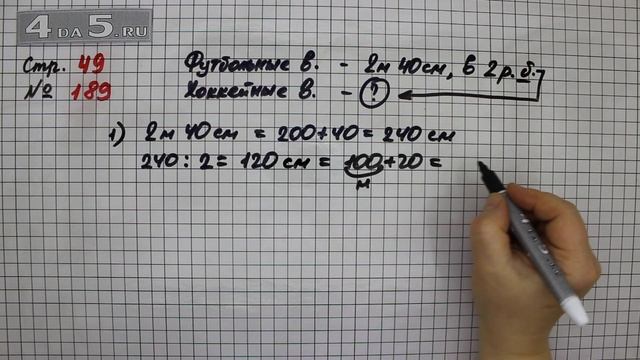 4 ДА 5.RU
Стр. 49
№ 189
Футбольные в. - 2 м 40 см, в 2 р. б.
Хоккейные в. - ?
1) 2 м 40 см = 200+40 = 240 см
240 : 2 = 120 см = 100+20 =
м
4 ДА 5.RU